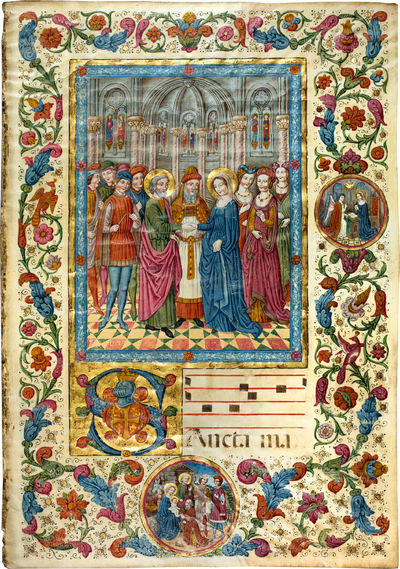 Sancta ma